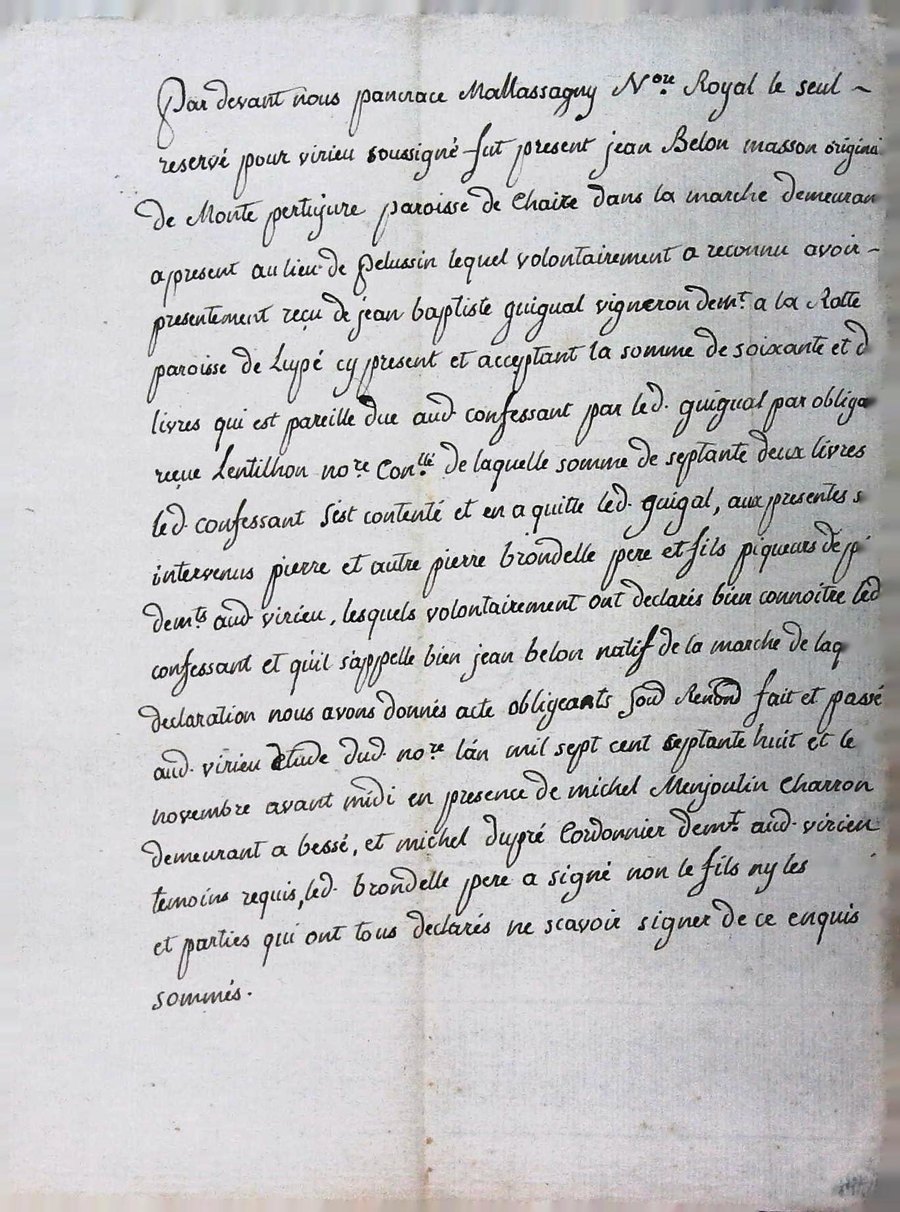 Par devant nous pancrace Mallassagny N.ore Royal le seul ~
reservé pour virieu soussigné fut present jean Belon masson origina
de Monte pertujure paroisse de Chaire dans la marche demeuran
a present au lieu de Pelussin lequel volontairement a reconnu avoir ~
presentement reçu de jean baptiste guigual vigneron dem.t a la Ratte
paroisse de Lupé cy present et acceptant la somme de soixante et d
livres qui est pareille due aud. confessant par led. guigual par obliga
reçue Lentilhon no.re Con.llé de laquelle somme de septante deux livres
led. confessant s'est contenté et en a quitte led. guigal, aux presentes s
intervenus pierre et autre pierre brondelle pere et fils piqueurs de pi
dem.ts aud. virieu, lesquels volontairement ont declarés bien connoitre led
confessant et qu'il s'appelle bien jean belon natif de la marche de laq
declaration nous avons donnés acte obligeants soud Renond fait et passé
aud. virieu Etude dud. no.re l'an mil sept cent septante huit et le
novembre avant midi en presence de michel Menjoulin Charron
demeurant a bessé, et michel dupré Cordonnier dem.t aud. virieu
temoins requis, led. brondelle pere a signé non le fils ny les
et parties qui ont tous declarés ne scavoir signer de ce enquis
sommés.